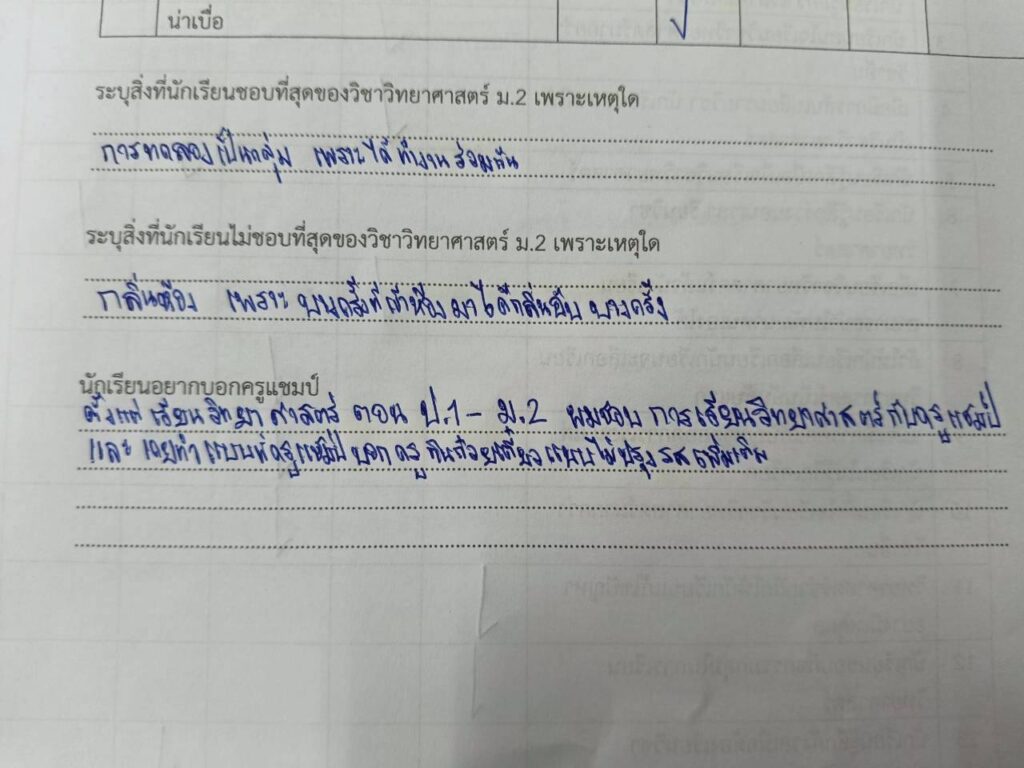 น่าเบื่อ
ระบุสิ่งที่นักเรียนชอบที่สุดของวิชาวิทยาศาสตร์ ม.2 เพราะเหตุใด
การทดลองเป็นกลุ่ม เพราะได้ทำงานร่วมกัน
ระบุสิ่งที่นักเรียนไม่ชอบที่สุดของวิชาวิทยาศาสตร์ ม.2 เพราะเหตุใด
กลิ่นห้อง เพราะ บางครั้งที่เข้าห้องมาได้กลิ่นอับ บางครั้ง
นักเรียนอยากบอกครูแชมป์
ตั้งแต่เรียนวิทยาศาสตร์ ตอน ป.1 - ม.2 ผมชอบ การเรียนวิทยาศาสตร์กับครูแชมป์
และ เคยทำแบบที่ครูแชมป์ บอก กินก๋วยเตี๋ยวแบบไม่ปรุงรสเพิ่มเติม